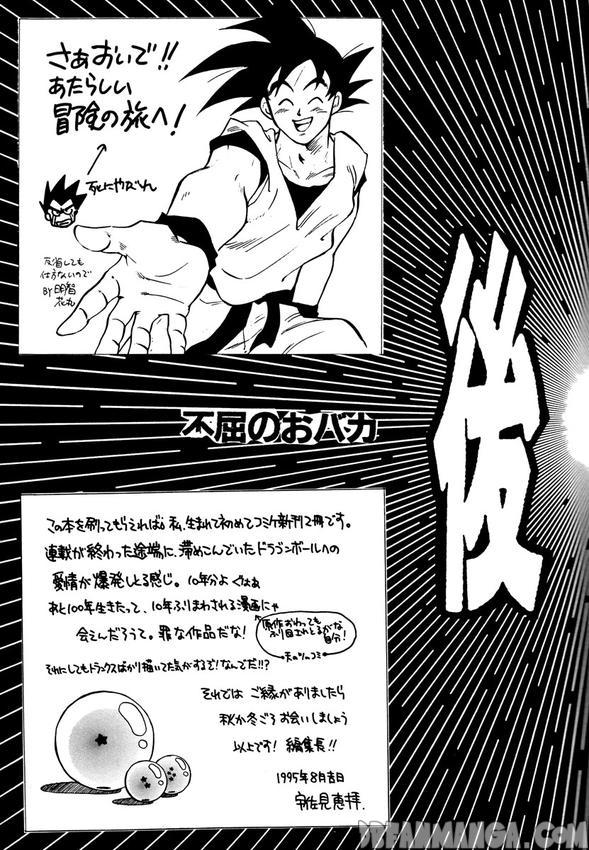 さあおいで!!
あたらしい
冒険の旅へ!
反省しても
仕方ないので
BY明智
不屈のおバカ
この本を刷ってもらえれば、私、生まれて初めてコミケ新刊7冊です。
連載が終わった途端に、滞めこんでいたドラゴンボールへの
愛情が爆発しとる感じ。10年分よくもなぁ
あと100年生きたって、10年ふりまわされる漫画にゃ
会えんだろうて。罪な作品だな!
原作おわっても
ふり回されとるがな
自分!
天のツッコミ
それにしてもトランクスばかり描いてた気がするぞ!なんでだ!!?
それでは ご縁がありましたら
秋か冬ごろお会いしましょう
以上です! 編集長!!
1995年8月吉日
FANMANGA.COM